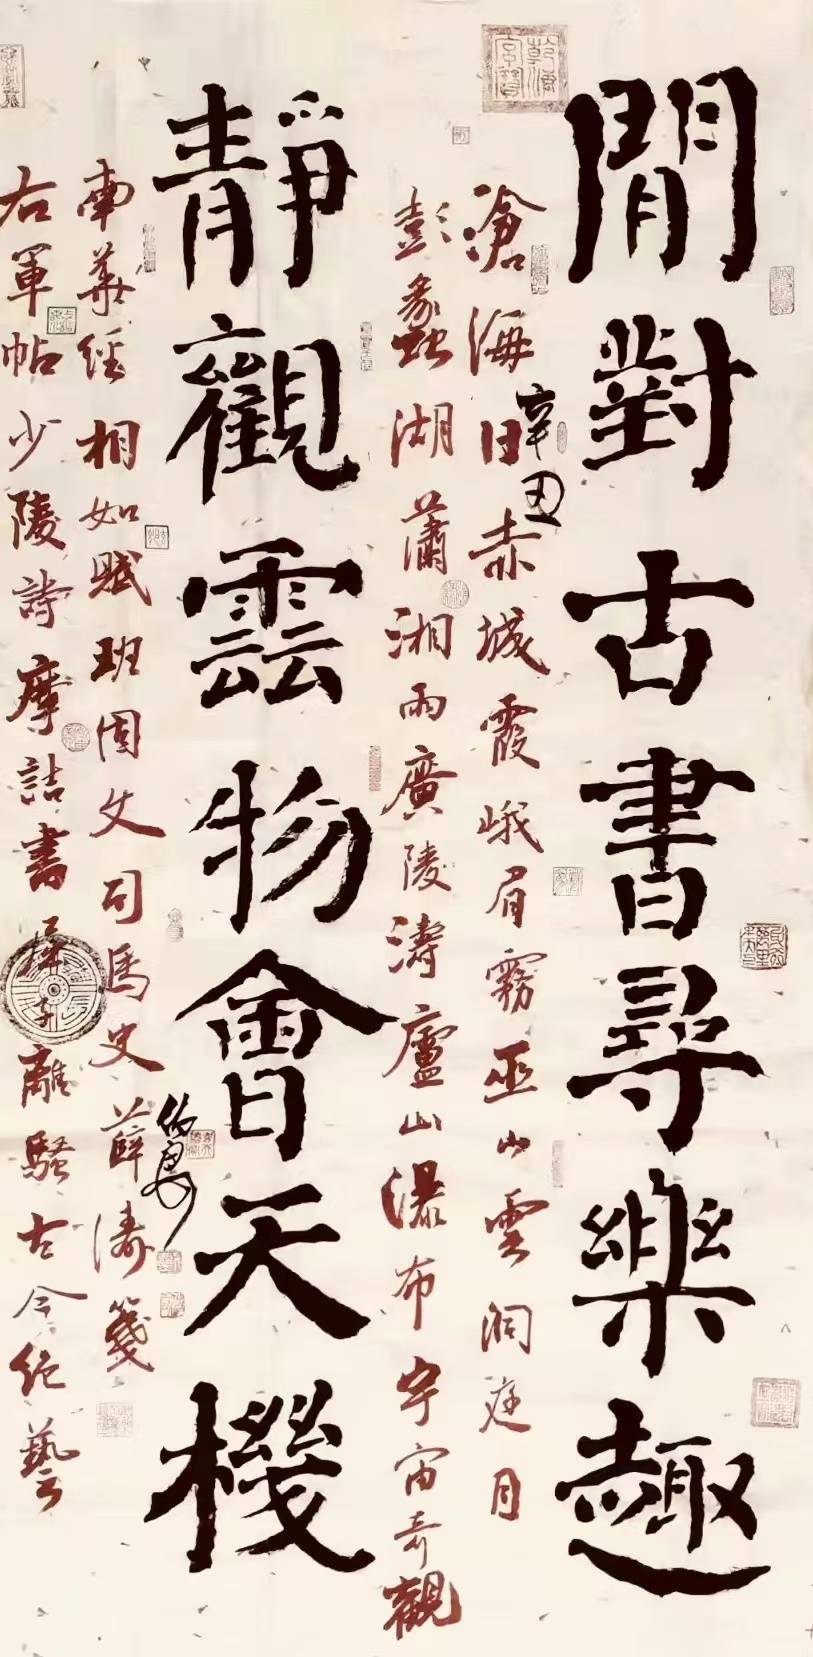 閒對古書尋樂趣
滄海日赤城霞峨眉霧巫山雲洞庭月
辛丑
彭蠡湖瀟湘雨廣陵濤廬山瀑布宇宙奇觀
靜觀雲物會天機
南華經相如賦班固文司馬史薛濤箋
右軍帖少陵詩摩詰書屈子離騷古今絕藝